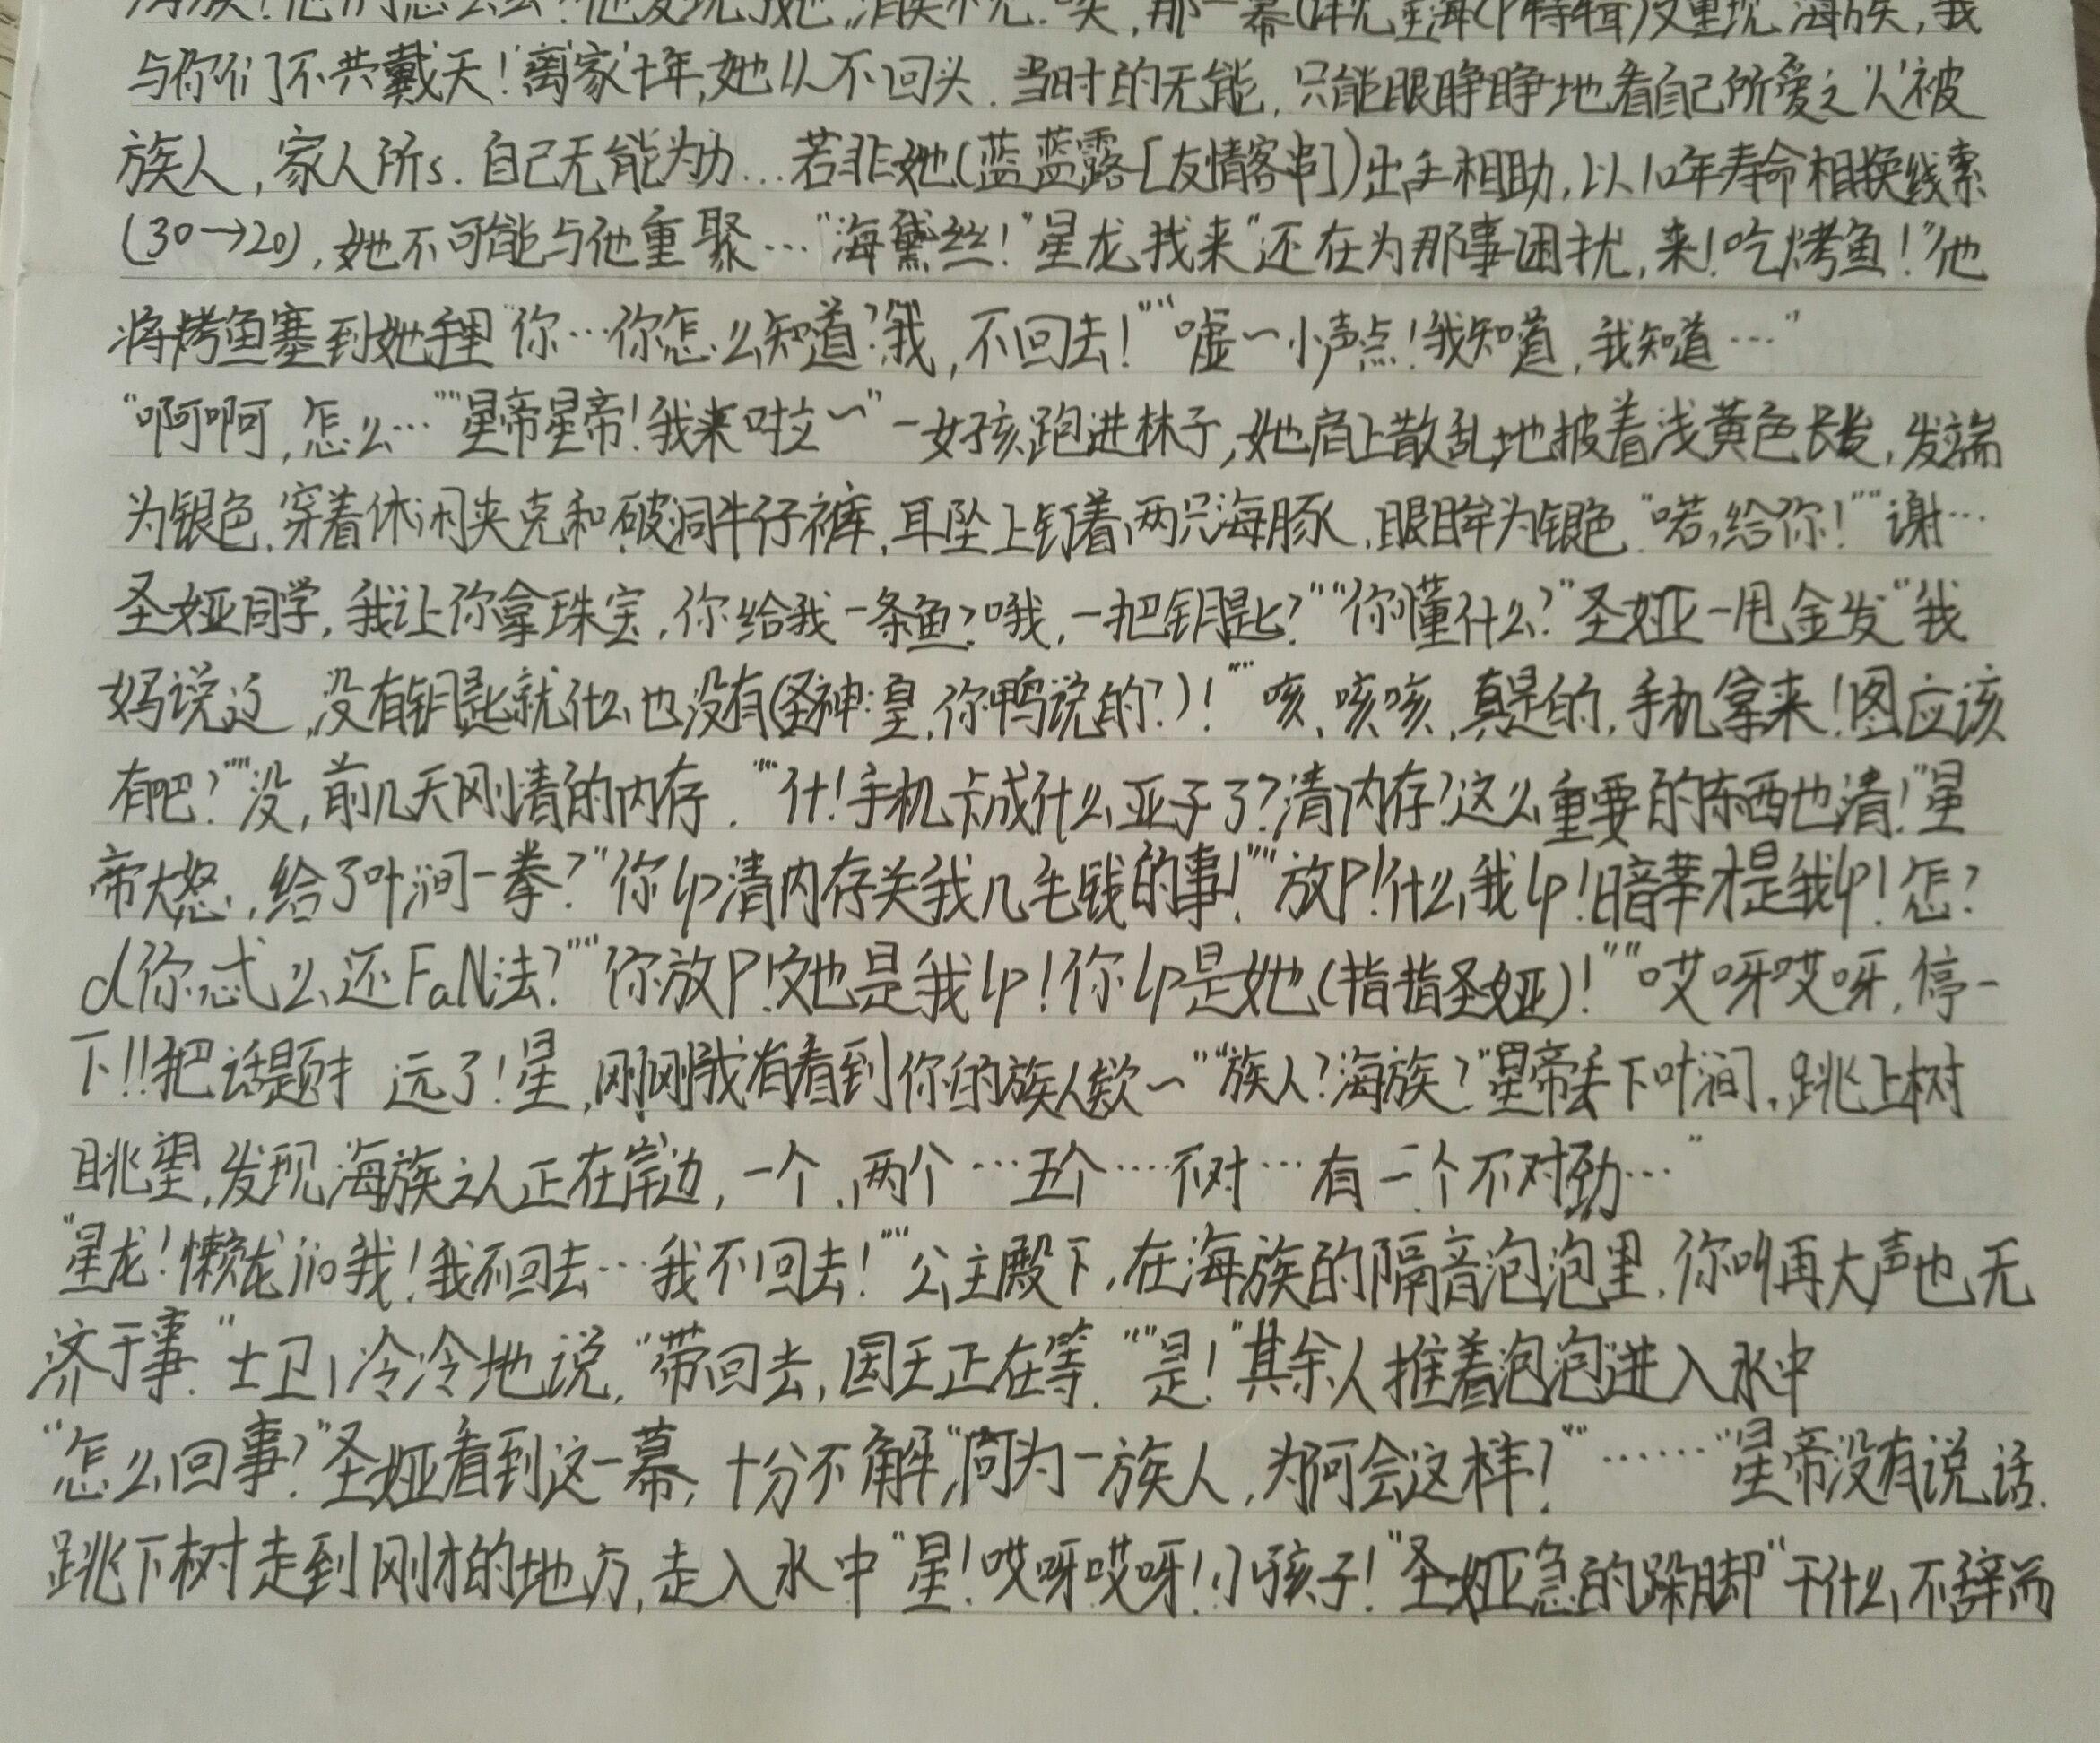 海族！他们怎么会！他发现了她，消失不见．哭，那一幕(详见星海CP特辑)又重现．海族，我
与你们不共戴天！离家十年，她从不回头．当时的无能，只能眼睁睁地看自己所爱之'人'被
族人，家人所s．自己无能为力…若非她(蓝蓝露[友情客串])出手相助，以10年寿命相换线索
(30→20)，她不可能与他重聚…"海黛丝！"星龙找来"还在为那事困扰，来！吃烤鱼！"他
将烤鱼塞到她手里"你…你怎么知道？我，不回去！""嘘～小声点！我知道，我知道…"
"啊啊，怎么…""星帝星帝！我来啦～"一女孩跑进林子，她肩上散乱地披着浅黄色长发，发端
为银色，穿着休闲夹克和破洞牛仔裤，耳坠上钉着两只海豚，眼眸为银色．"喏，给你！""谢…
圣娅同学，我让你拿珠宝，你给我一条鱼？哦，一把钥匙？""你懂什么？"圣娅一甩金发"我
妈说过，没有钥匙就什么也没有(圣神皇：你鸭说的？)！""咳，咳咳，真是的，手机拿来！图应该
有吧？""没，前几天刚清的内存．""什！手机卡成什么亚子了？清内存？这么重要的东西也清！"星
帝大怒，给了叶涧一拳？"你lp清内存关我几毛钱的事！""放P！什么我lp！暗苹才是我lp！怎？
d你忒么还FaN法？""你放P！她也是我lp！你lp是她(指指圣娅)！""哎呀哎呀，停一
下!!把话题扌 远了！星，刚刚我有看到你的族人欸～""族人？海族？"星帝丢下叶涧，跳上树
眺望，发现海族之人正在岸边，一个，两个…五个…不对…有一个不对劲…"
"星龙！懒龙jio我！我不回去…我不回去！""公主殿下，在海族的隔音泡泡里，你叫再大声也无
济于事．"士卫1冷冷地说，"带回去，国王正在等．""是！"其余人推着泡泡进入水中
"怎么回事？"圣娅看到这一幕，十分不解，"同为一族人，为何会这样？""……"星帝没有说话．
跳下树走到刚才的地方，走入水中"星！哎呀哎呀！小孩子！"圣娅急的跺脚"干什么，不辞而